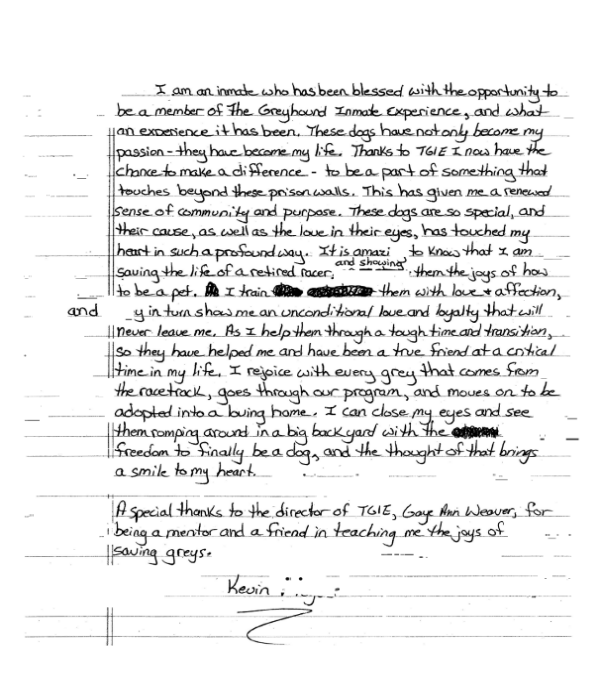 I am an inmate who has been blessed with the opportunity to
be a member of The Greyhound Inmate Experience, and what
an experience it has been. These dogs have not only become my
passion - they have become my life. Thanks to TGIE I now have the
chance to make a difference - to be a part of something that
touches beyond these prison walls. This has given me a renewed
sense of community and purpose. These dogs are so special, and
their cause, as well as the love in their eyes, has touched my
heart in such a profound way. It is amazi to know that I am
and showing
saving the life of a retired racer, them the joys of how
to be a pet. I train them with love & affection,
and y in turn show me an unconditional love and loyalty that will
never leave me. As I help them through a tough time and transition,
so they have helped me and have been a true friend at a critical
time in my life. I rejoice with every grey that comes from
the racetrack, goes through our program, and moves on to be
adopted into a loving home. I can close my eyes and see
them romping around in a big back yard with the
freedom to finally be a dog, and the thought of that brings
a smile to my heart.
A special thanks to the director of TGIE, Gaye Ann Weaver, for
being a mentor and a friend in teaching me the joys of
saving greys.
Kevin